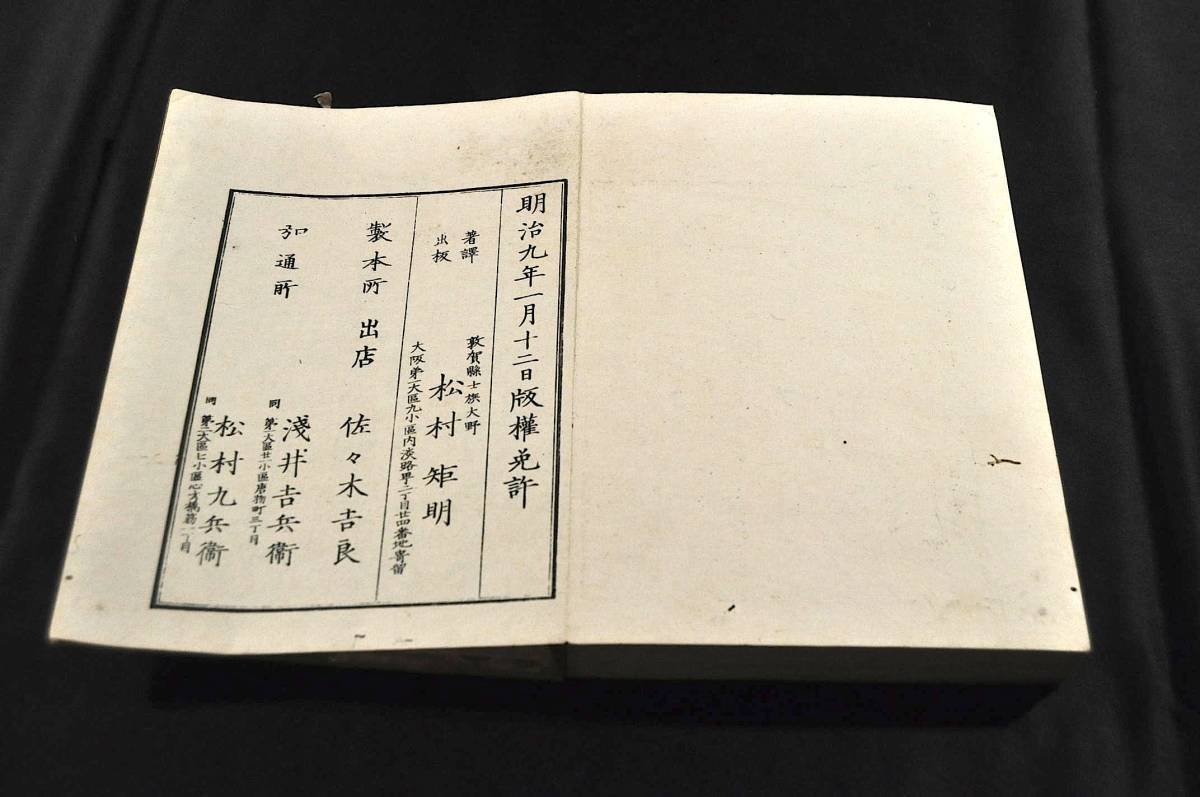 明治九年一月十二日版權免許
著譯
出板
敦賀縣士族大野
松村矩明
大阪第一大區九小區內淡路町二丁目廿四番地寄留
製本所 出店 佐々木吉良
弘通所
同 第一大區廿一小區唐物町三丁目
淺井吉兵衞
同 第二大區七小區心才橋筋一丁目
松村九兵衞